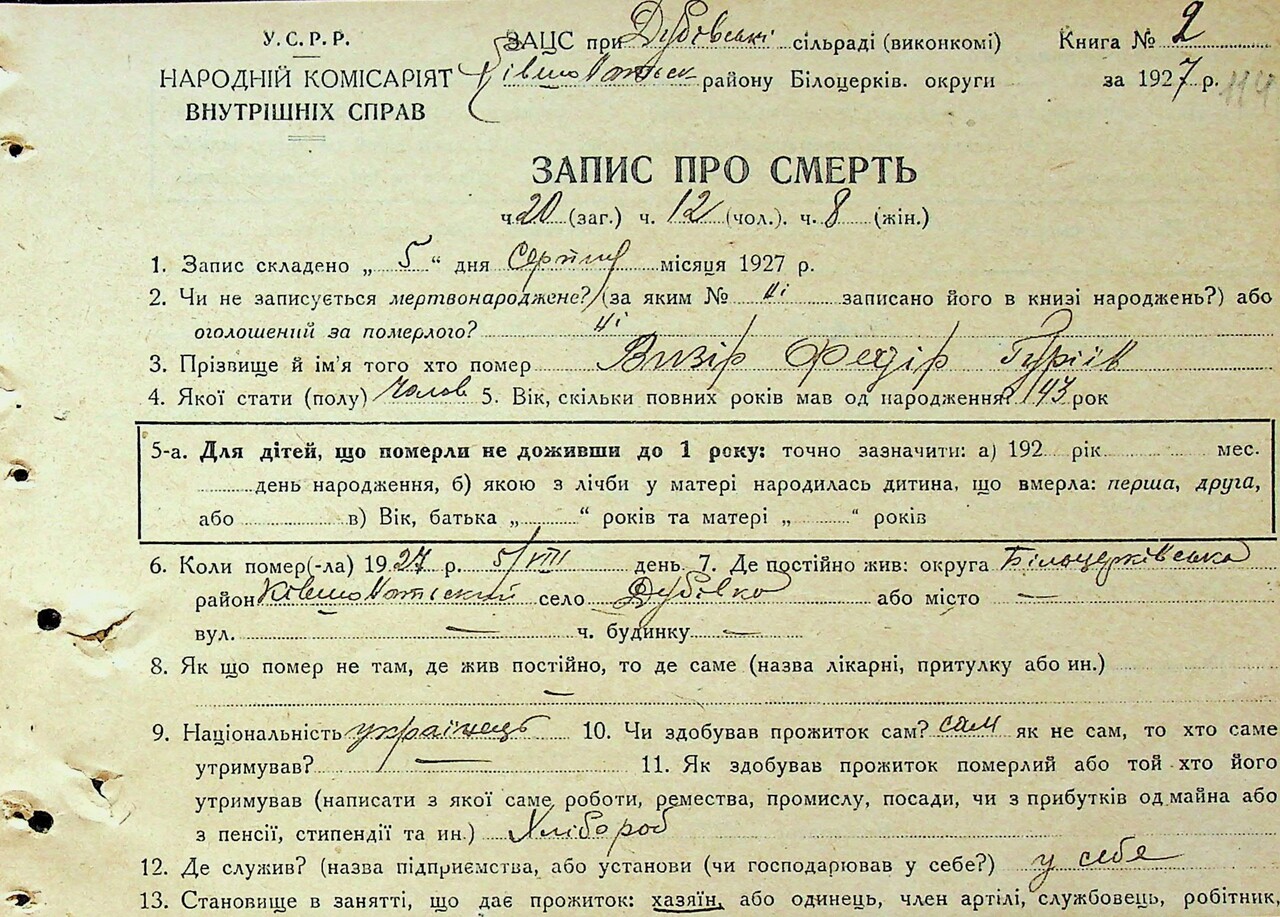 У.С.Р.Р.
НАРОДНІЙ КОМІСАРІЯТ
ВНУТРІШНІХ СПРАВ
ЗАЦС при Дубівські сільраді (виконкомі)
району Білоцерків. округи
Книга № 2
за 1927 р.
114
ЗАПИС ПРО СМЕРТЬ
ч. 20 (заг.) ч. 12 (чол.). ч. 8 (жін.)
1. Запис складено „ 5 “ дня Серпня місяця 1927 р.
2. Чи не записується мертвонароджене? (за яким № ні записано його в книзі народжень?) або
оголошений за померлого? ні
3. Прізвище й ім'я того хто помер Визір Федір Гуріїв
4. Якої стати (полу) чолов 5. Вік, скільки повних років мав од народження? 43 рок
5-а. Для дітей, що померли не доживши до 1 року: точно зазначити: а) 192 рік мес.
день народження, б) якою з лічби у матері народилась дитина, що вмерла: перша, друга,
або в) Вік, батька „ “ років та матері „ “ років
6. Коли помер(-ла) 1927 р. 5/VIII день. 7. Де постійно жив: округа Білоцерківська
район село Дубівка або місто —
вул. — ч. будинку —
8. Як що помер не там, де жив постійно, то де саме (назва лікарні, притулку або ин.)
—
9. Національність українець 10. Чи здобував прожиток сам? сам як не сам, то хто саме
утримував? — 11. Як здобував прожиток померлий або той хто його
утримував (написати з якої саме роботи, ремества, промислу, посади, чи з прибутків од майна або
з пенсії, стипендії та ин.) Хлібороб
12. Де служив? (назва підприємства, або установи (чи господарював у себе?) у себе
13. Становище в занятті, що дає прожиток: хазяїн, або одинець, член артілі, службовець, робітник,